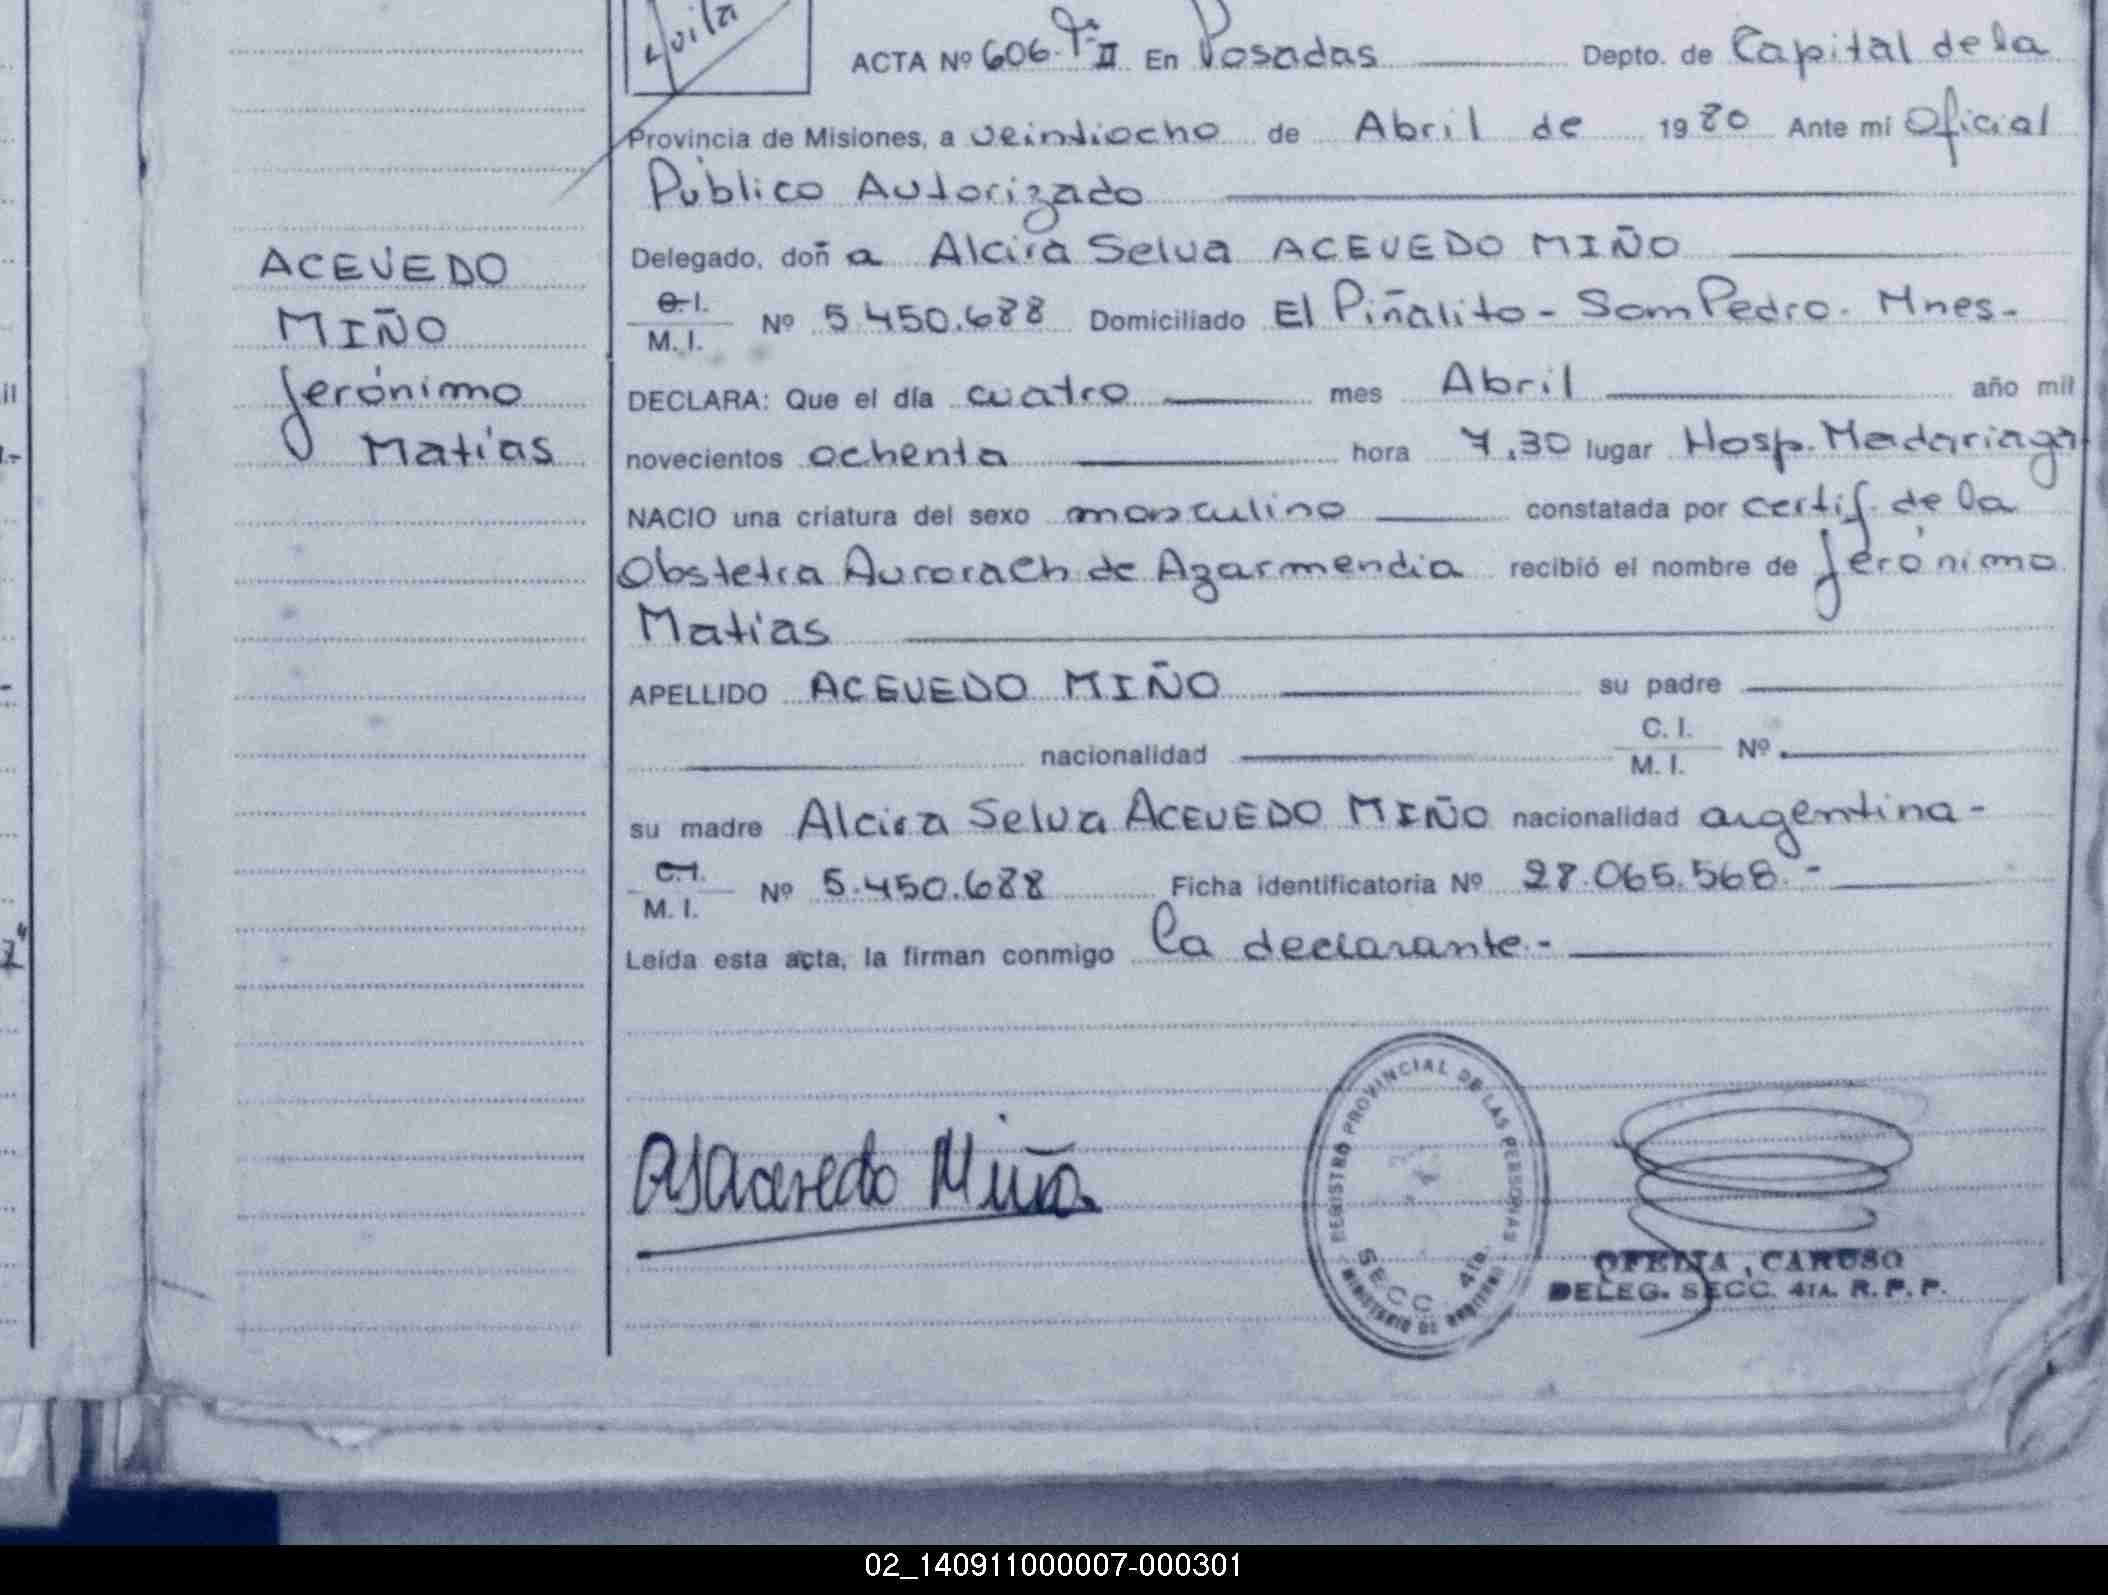 Avila
ACTA Nº 606. Tº II En Posadas Depto. de Capital de la
Provincia de Misiones, a veintiocho de Abril de 1980 Ante mí Oficial
Público Autorizado
Delegado, doña Alcira Selva ACEVEDO MIÑO
C.I. M.I. Nº 5.450.688 Domiciliado El Piñalito - San Pedro. Mnes.-
DECLARA: Que el día cuatro mes Abril año mil
novecientos ochenta hora 7,30 lugar Hosp. Madariaga
NACIO una criatura del sexo masculino constatada por certif. de la
Obstetra Aurora Ch de Azarmendia recibió el nombre de Jerónimo
Matías
APELLIDO ACEVEDO MIÑO su padre
nacionalidad C. I. M. I. Nº
su madre Alcira Selva ACEVEDO MIÑO nacionalidad argentina-
C.I. M. I. Nº 5.450.688 Ficha identificatoria Nº 28.065.568.-
Leída esta acta, la firman conmigo la declarante.-
ACEVEDO
MIÑO
Jerónimo
Matías
il
ASAcevedo Miño
REGISTRO PROVINCIAL DE LAS PERSONAS
SECC. 4ta.
MINISTERIO DE GOBIERNO
OFELIA CARUSO
DELEG. SECC. 4TA. R. P. P.
02_140911000007-000301